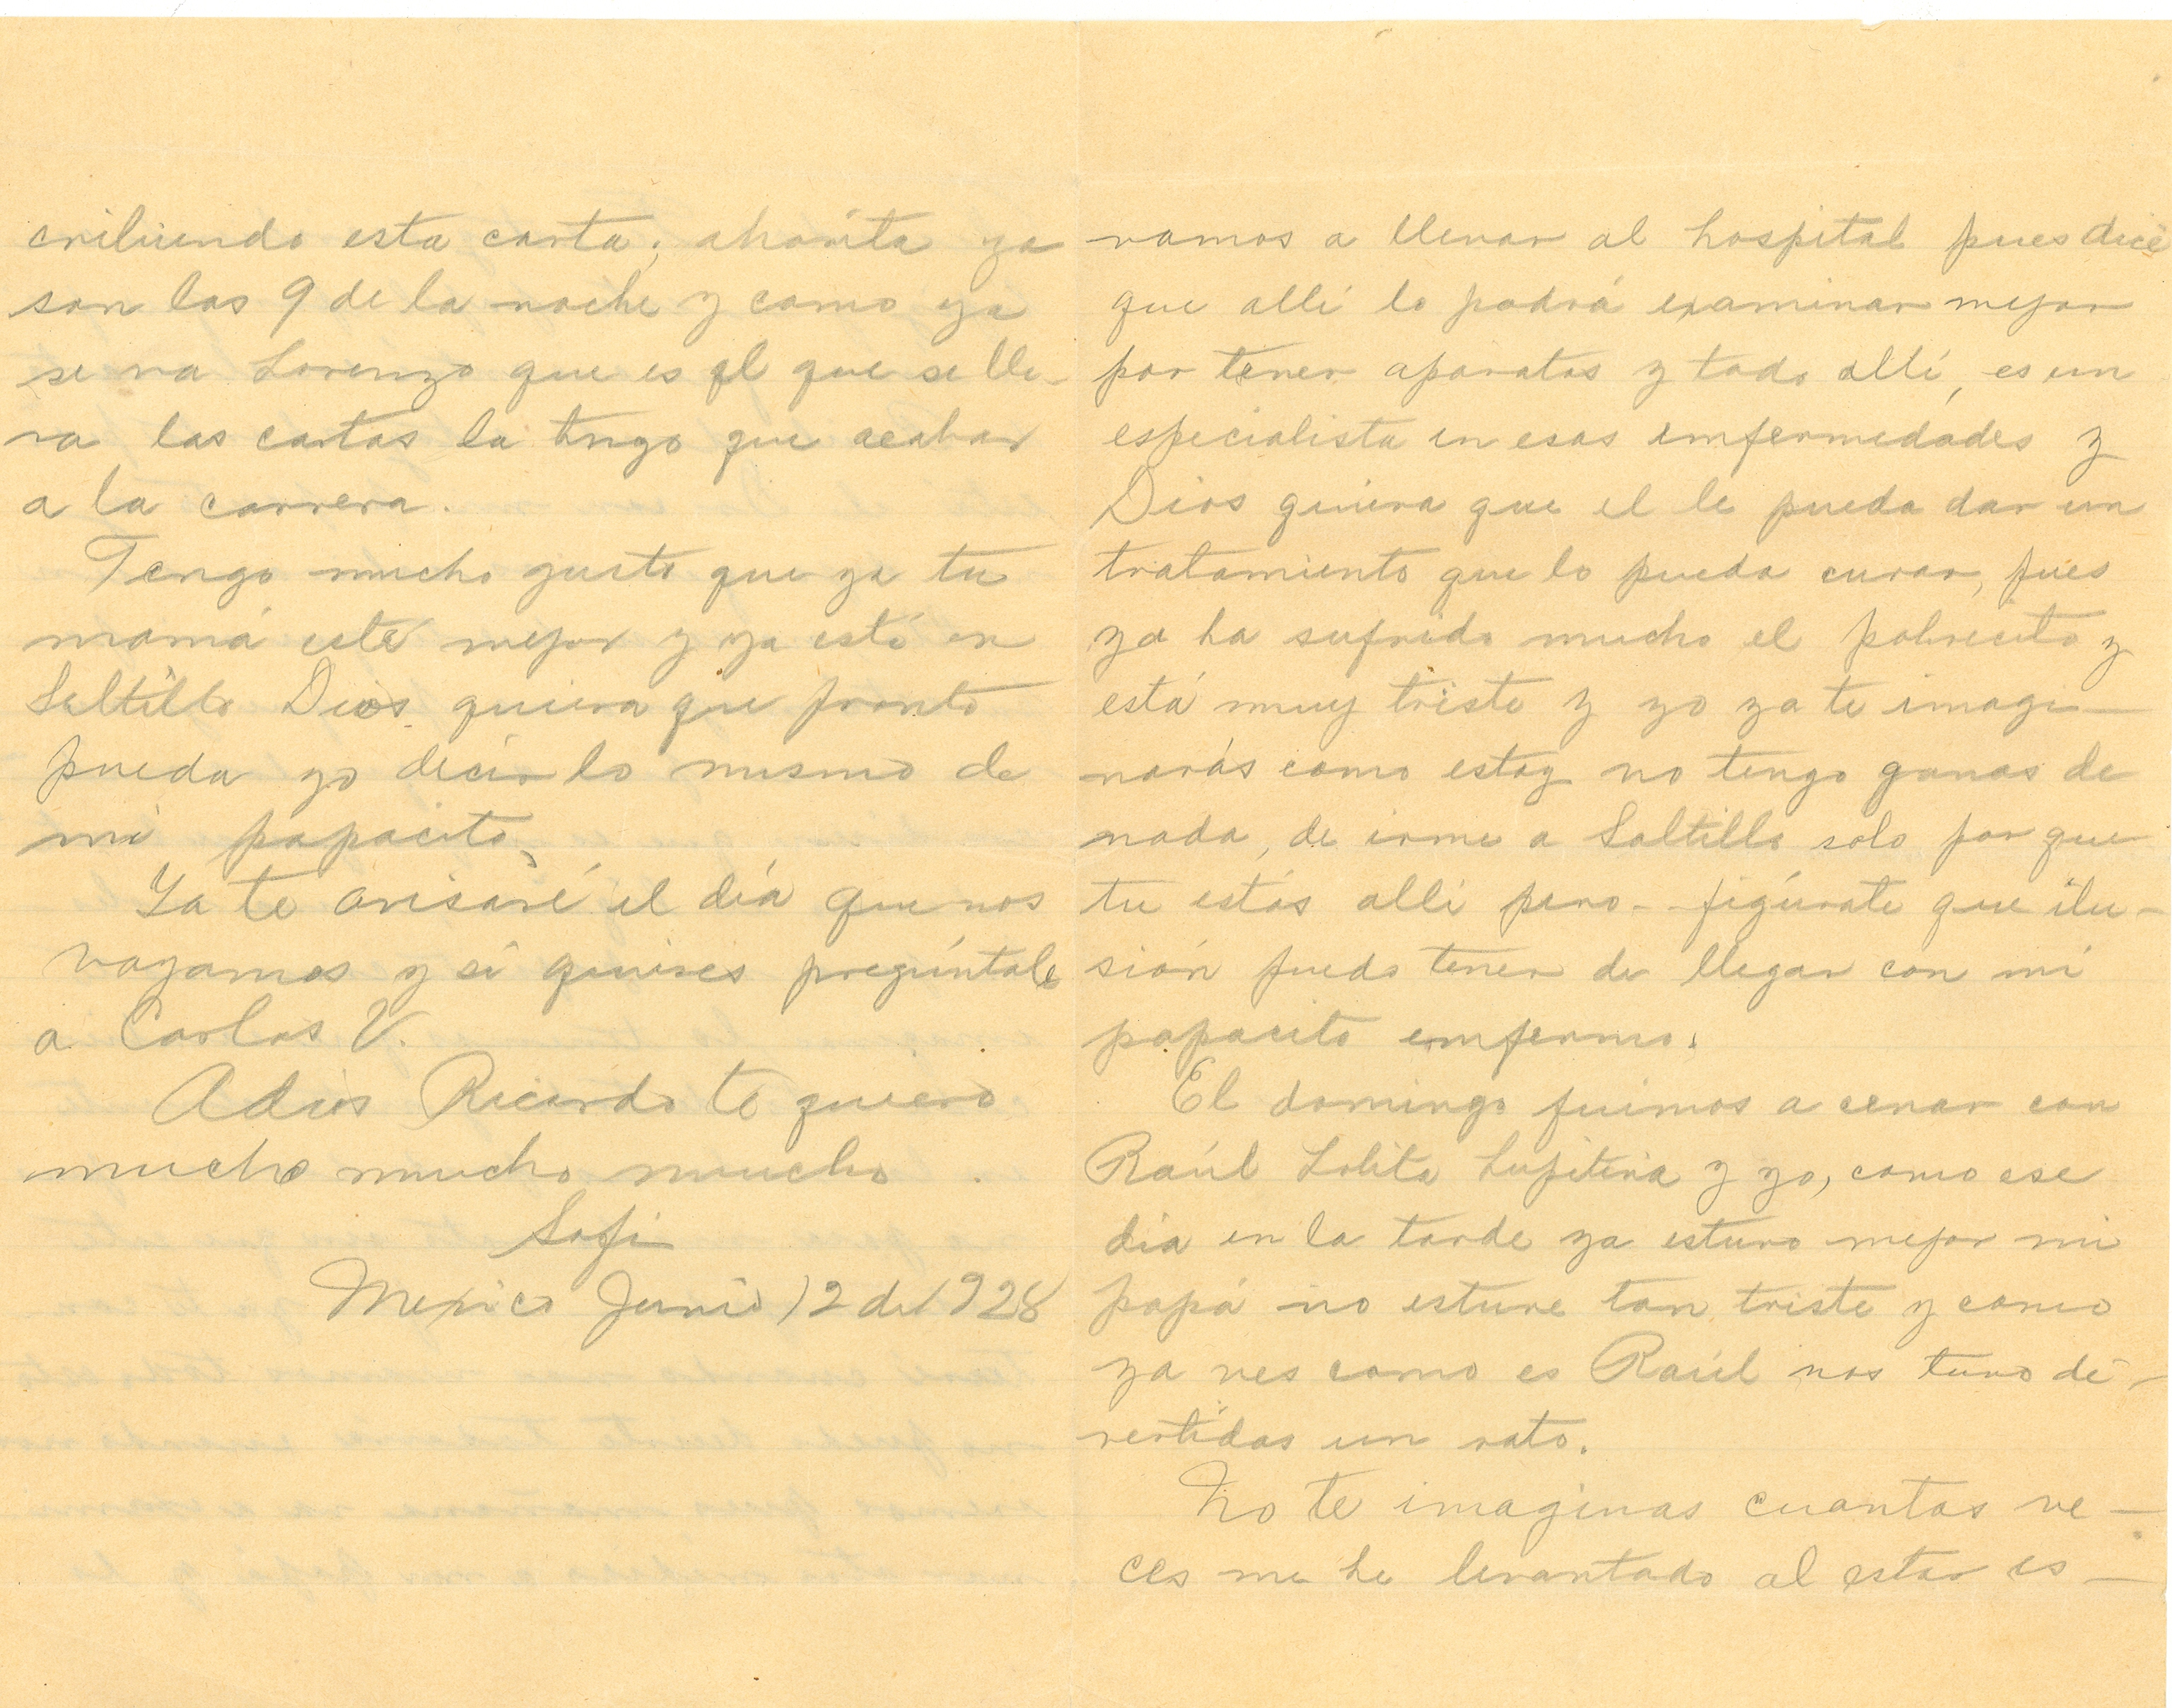 vamos a llevar al hospital pues dice
que alli lo podrá examinar mejor
por tener aparatos y todo allí, es un
especialista en esas emfermedades y
Dios quiera que el le pueda dar un
tratamiento que lo pueda curar, pues
ya ha sufrido mucho el pobrecito y
está muy triste y yo ya te imagi-
narás como estoy no tengo ganas de
nada, de irme a Saltillo solo por que
tu estás alli pero - figúrate que ilu-
sión puedo tener de llegar con mi
papacito emfermo.
El domingo fuimos a cenar con
Raúl Lolita Lupitina y yo, como ese
dia en la tarde ya estuvo mejor mi
papá no estuve tan triste y como
ya ves como es Raúl nos tuvo di-
vertidas un rato.
No te imaginas cuantas ve-
ces me he levantado al estar es-
cribiendo esta carta; ahorita ya
son las 9 de la noche y como ya
se va Lorenzo que es el que se lle-
va las cartas la tengo que acabar
a la carrera.
Tengo mucho gusto que ya tu
mamá esté mejor y ya esté en
Saltillo Dios quiera que pronto
pueda yo decir lo mismo de
mi papacito.
Ya te avisaré el día que nos
vayamos y si quieres pregúntale
a Carlos V.
Adios Ricardo te quiero
mucho mucho mucho
Sofi
Mexico Junio 12 de 1928